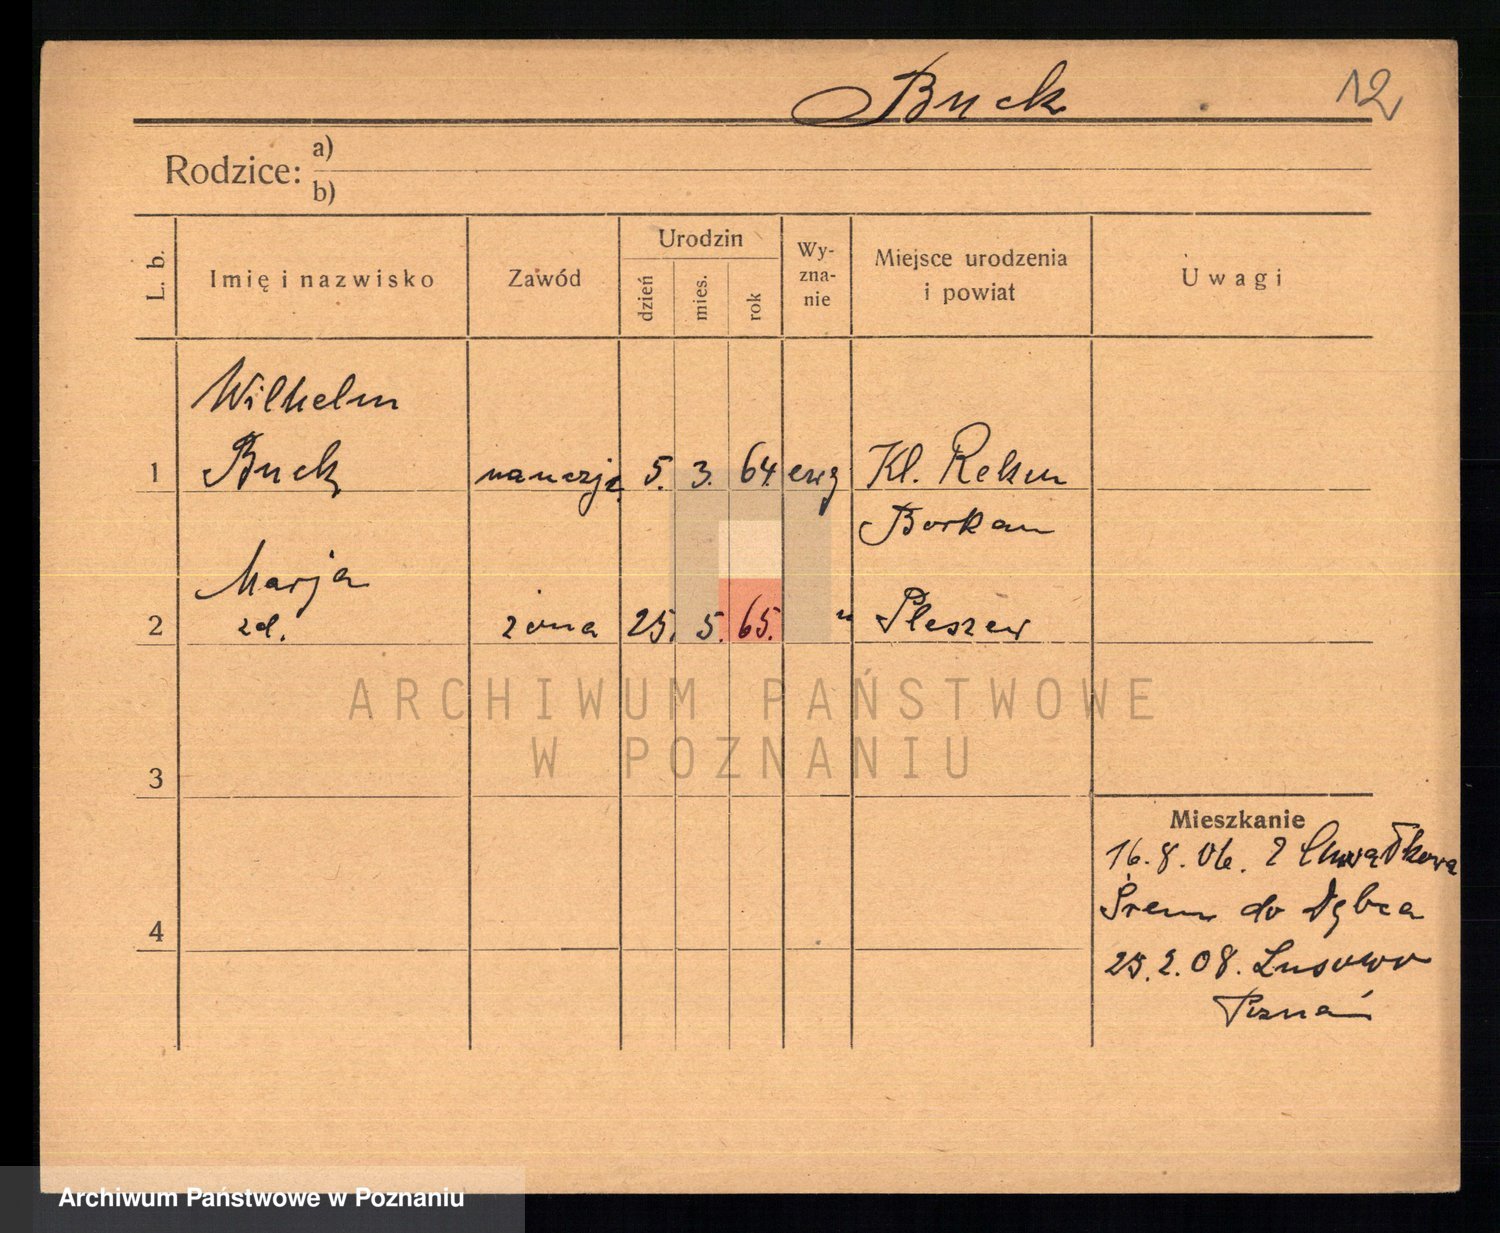 Buck 12
Rodzice: a)
b)
L. b. Imię i nazwisko Zawód Urodzin dzień mies. rok Wy-zna-nie Miejsce urodzenia i powiat Uwagi
Wilhelm
1 Buck 5. 3. 64. ewg Kl.
Borkau
Marja
2 zd. żona 25. 5. 65. " Pleszew
ARCHIWUM PAŃSTWOWE
W POZNANIU
3
Mieszkanie
16.8.06. Z Chwałkowa
Śrem do Dębca
4
25.2.08. Lusowo
Poznań
Archiwum Państwowe w Poznaniu